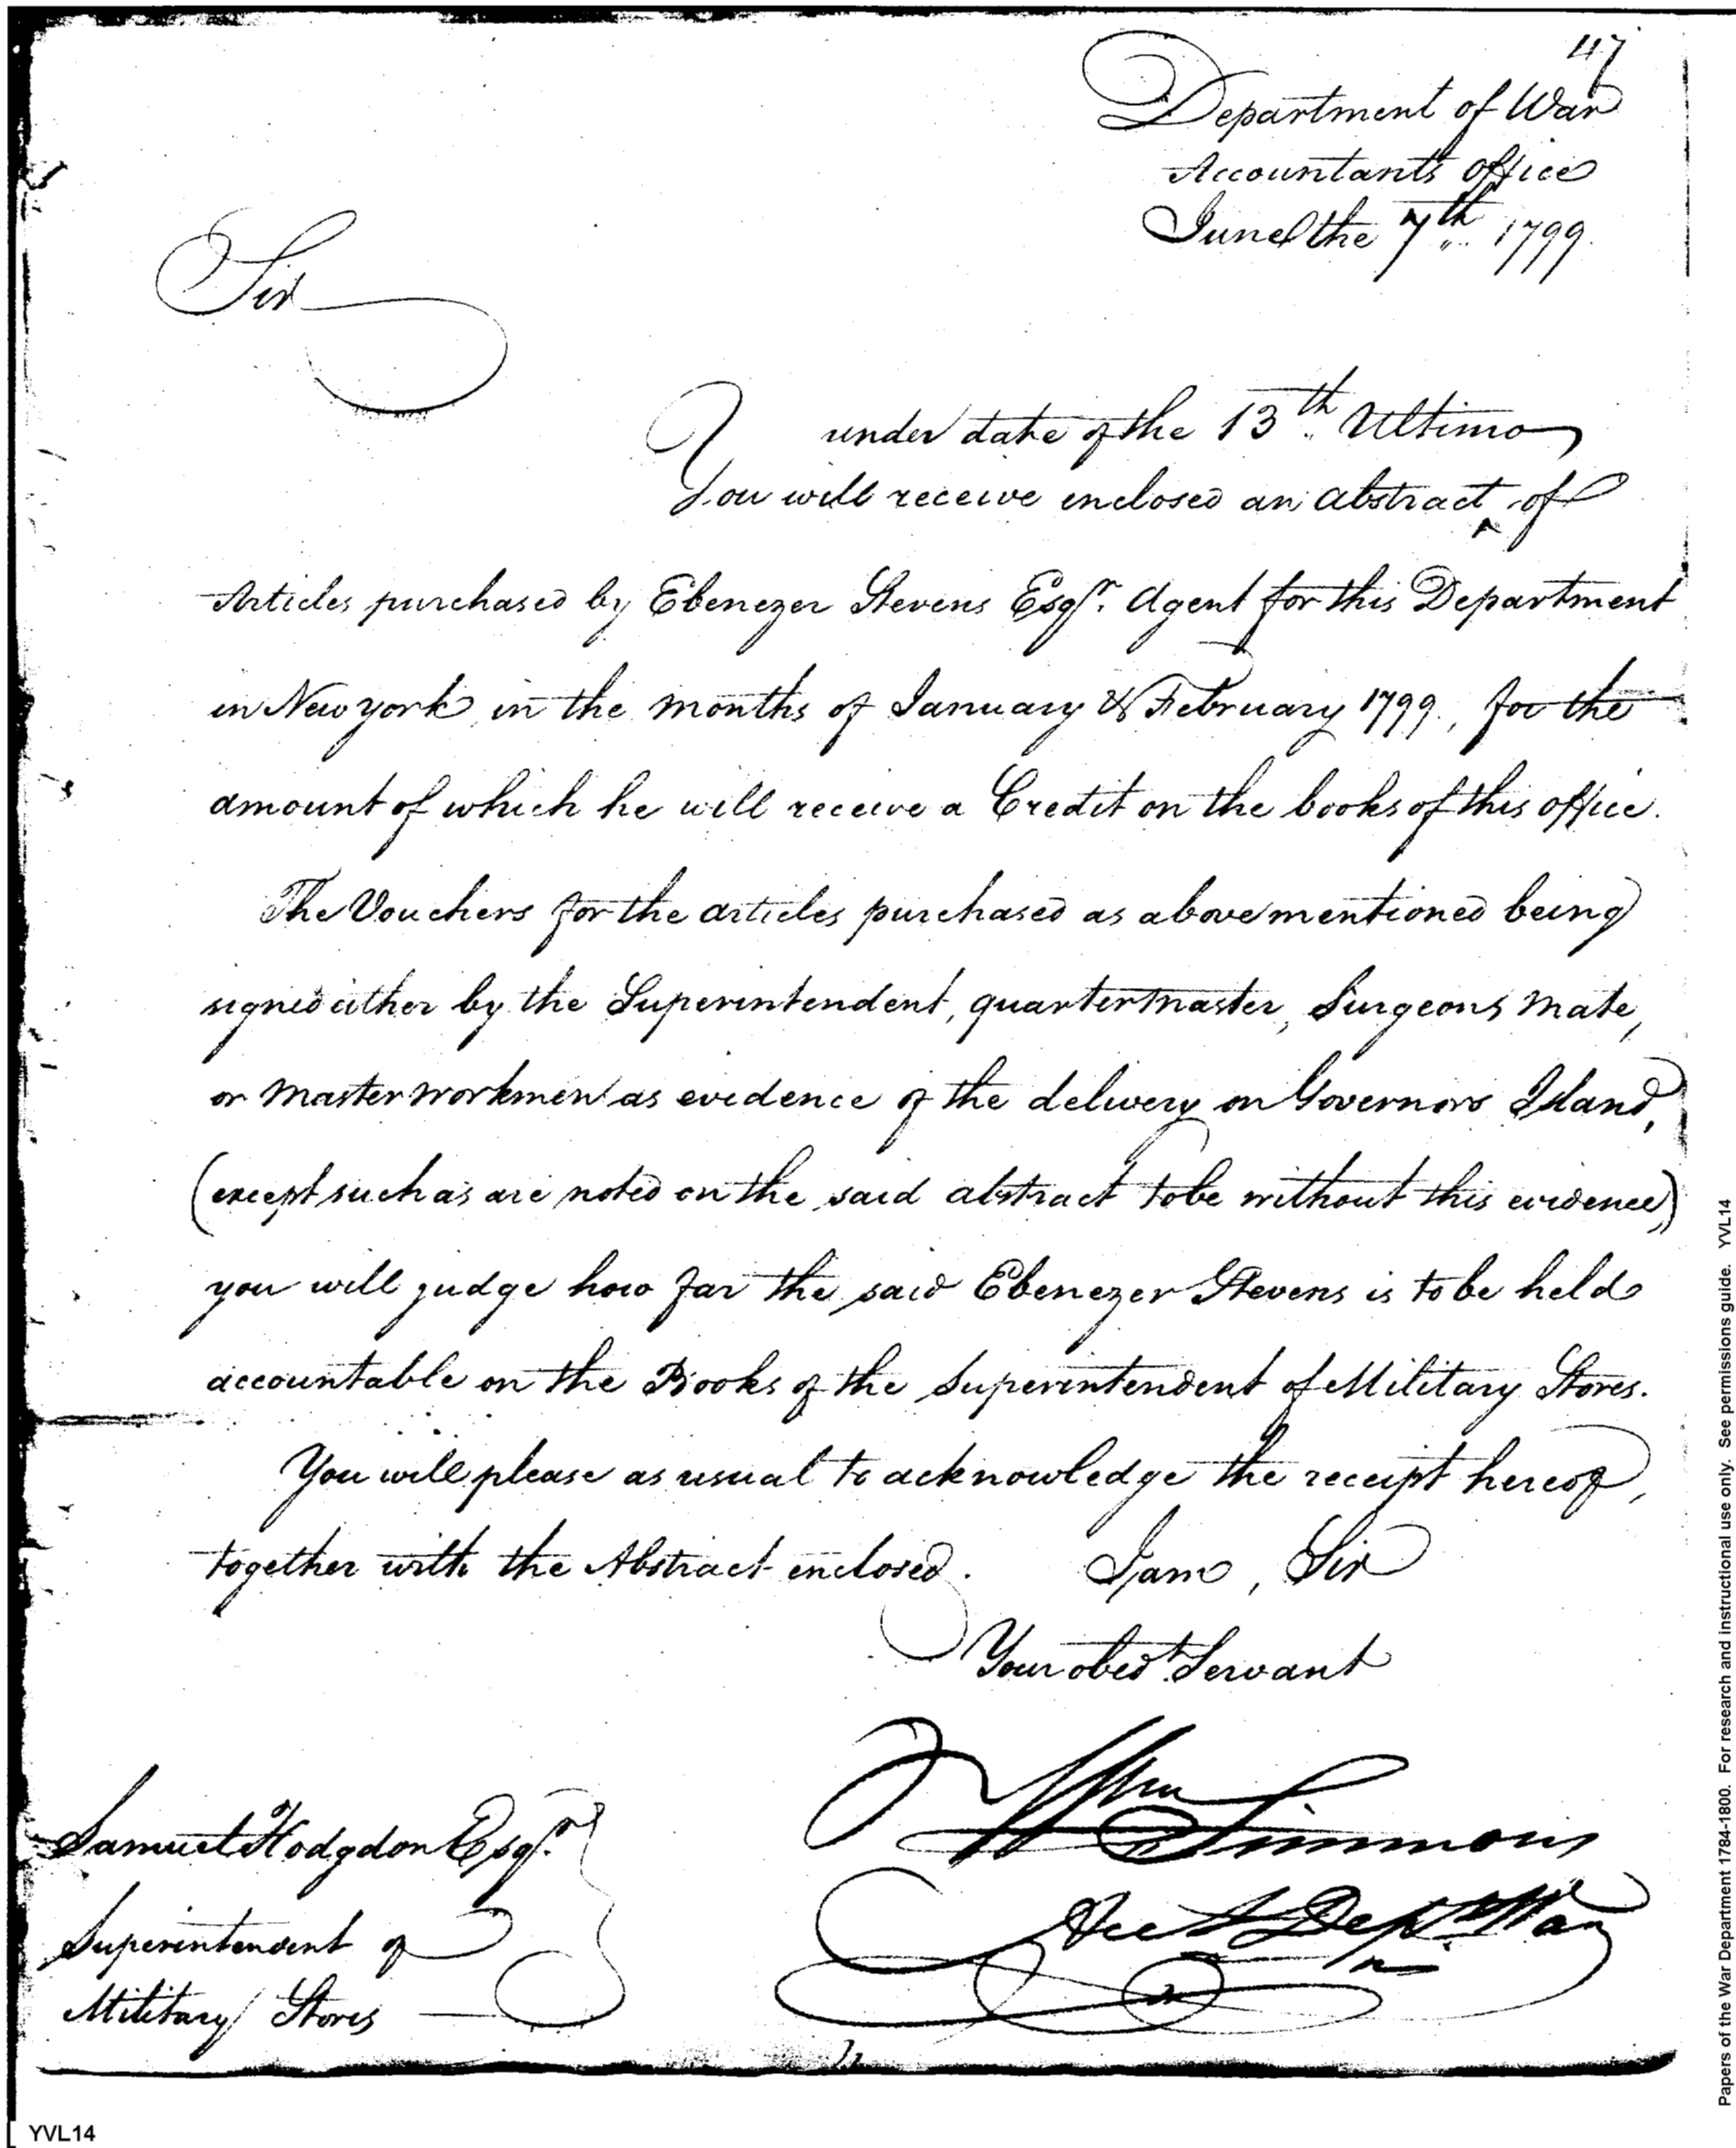 47
Department of War
Accountants office
June the 7th 1799.
Sir
under date of the 13th Ultimo
You will receive enclosed an abstract ‸ of
Articles purchased by Ebenezer Stevens Esqr. Agent for this Department
in New york in the months of January & February 1799., for the
amount of which he will receive a Credit on the books of this office.
The Vouchers for the articles purchased as above mentioned being
signed either by the Superintendent, quartermaster, Surgeons mate,
or master workmen as evidence of the delivery on Governors Island,
(except such as are noted on the said abstract to be without this evidence,)
you will judge how far the said Ebenezer Stevens is to be held
accountable on the Books of the Superintendent of Military Stores.
You will please as usual to acknowledge the receipt hereof,
together with the Abstract enclosed. I am, Sir
Your obedt. Servant
Wm Simmons
Acct Dept. War
Samuel Hodgdon Esqr.
Superintendent of
Military Stores
Papers of the War Department 1784-1800. For research and instructional use only. See permissions guide. YVL14
YVL14